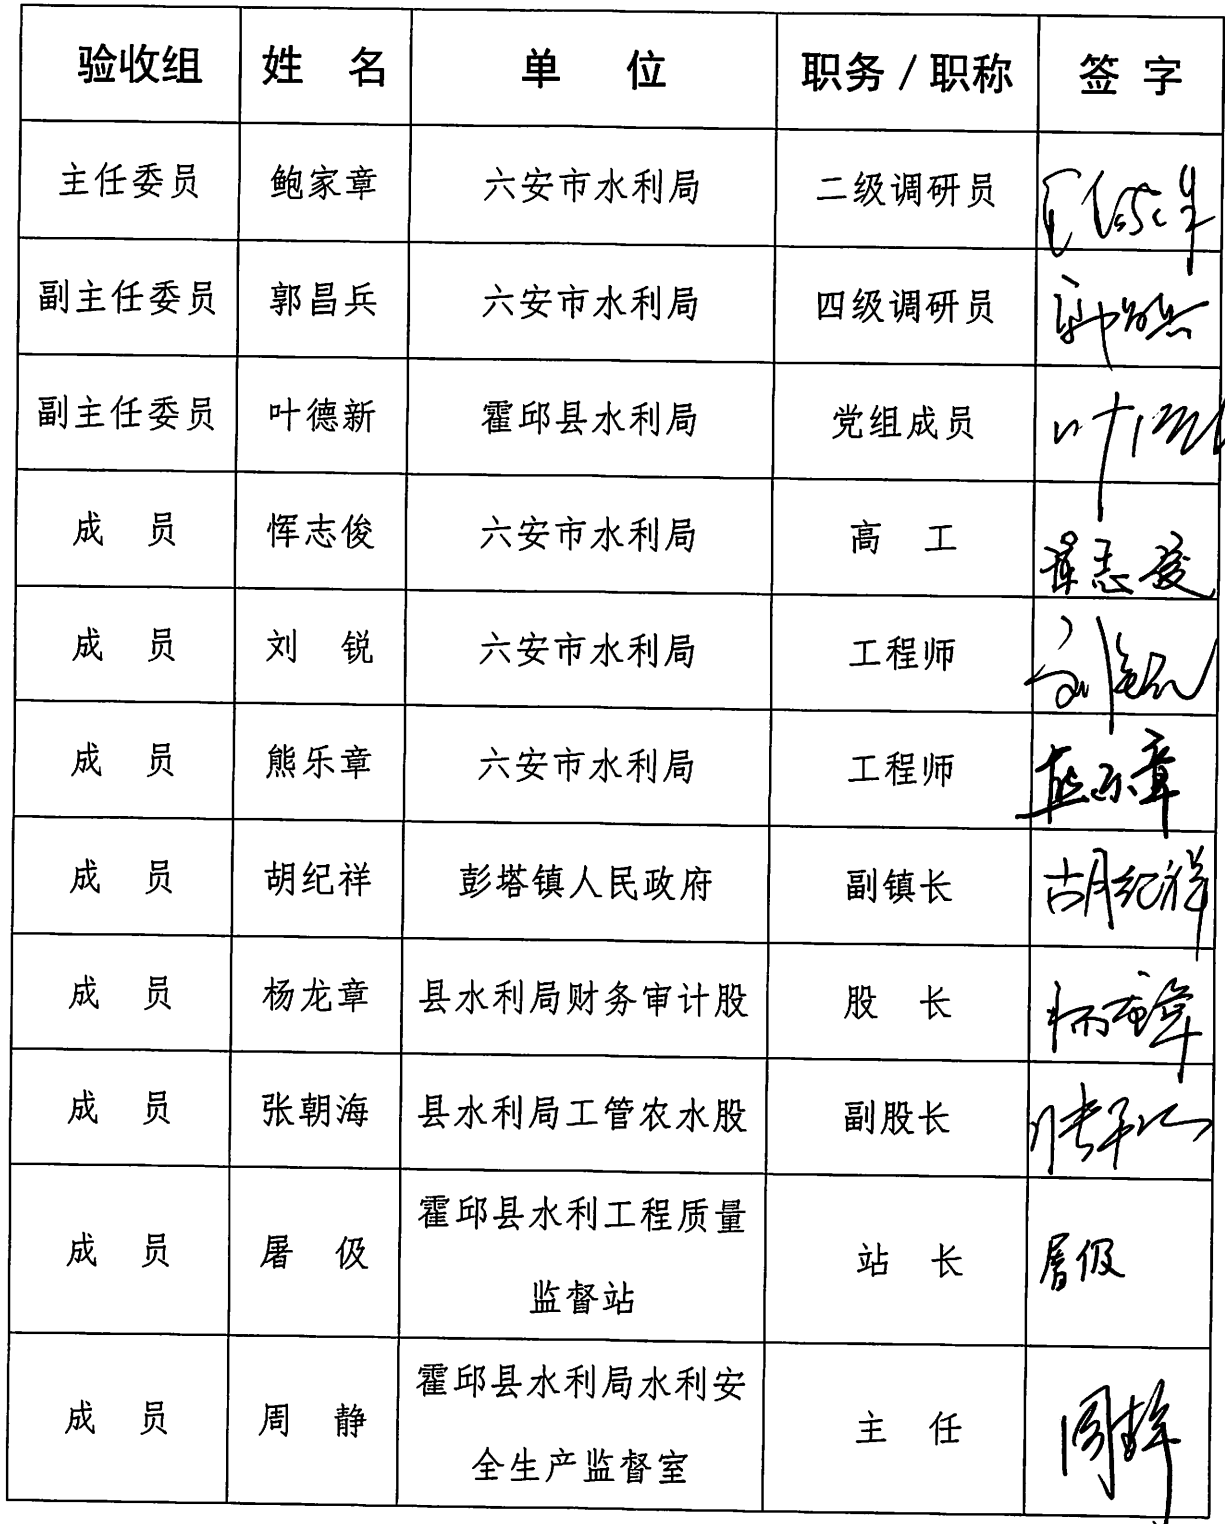 验收组 姓 名 单 位 职务/职称 签 字
主任委员 鲍家章 六安市水利局 二级调研员
副主任委员 郭昌兵 六安市水利局 四级调研员 郭昌兵
副主任委员 叶德新 霍邱县水利局 党组成员
成 员 恽志俊 六安市水利局 高 工 恽志俊
成 员 刘 锐 六安市水利局 工程师 刘锐
成 员 熊乐章 六安市水利局 工程师 熊乐章
成 员 胡纪祥 彭塔镇人民政府 副镇长 胡纪祥
成 员 杨龙章 县水利局财务审计股 股 长
成 员 张朝海 县水利局工管农水股 副股长
成 员 屠 伋 霍邱县水利工程质量
监督站 站 长 屠伋
成 员 周 静 霍邱县水利局水利安
全生产监督室 主 任 周静